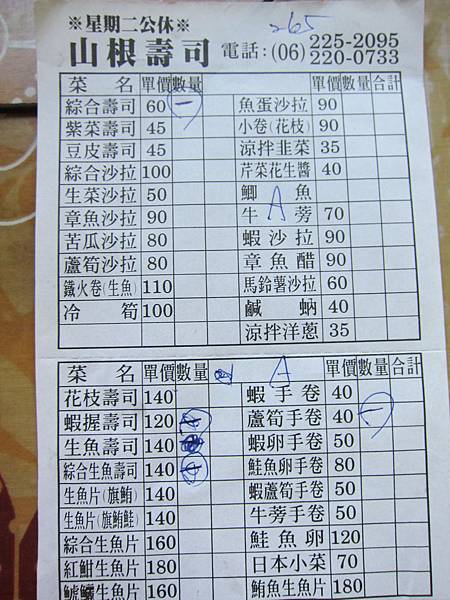 ※星期二公休※
265
山根壽司 電話:(06) 225-2095
220-0733
菜 名 單價 數量 單價 數量 合計
綜合壽司 60 一 魚蛋沙拉 90
紫菜壽司 45 小卷(花枝) 90
豆皮壽司 45 涼拌韭菜 35
綜合沙拉 100 芹菜花生醬 40
生菜沙拉 50 鯽魚
章魚沙拉 90 A 牛蒡 70
苦瓜沙拉 80 蝦沙拉 90
蘆筍沙拉 80 章魚醋 90
鐵火卷(生魚) 110 馬鈴薯沙拉 60
冷筍 100 鹹蚋 40
涼拌洋蔥 35
菜 名 單價 數量 A 單價 數量 合計
花枝壽司 140 蝦手卷 40
蝦握壽司 120 蘆筍手卷 40 一
生魚壽司 140 蝦卵手卷 50
綜合生魚壽司 140 鮭魚卵手卷 80
生魚片(旗鮪) 140 蝦蘆筍手卷 50
生魚片(旗鮪鮭) 140 牛蒡手卷 50
綜合生魚片 160 鮭魚卵 120
紅魽生魚片 180 日本小菜 70
生魚片 160 鮪魚生魚片 180